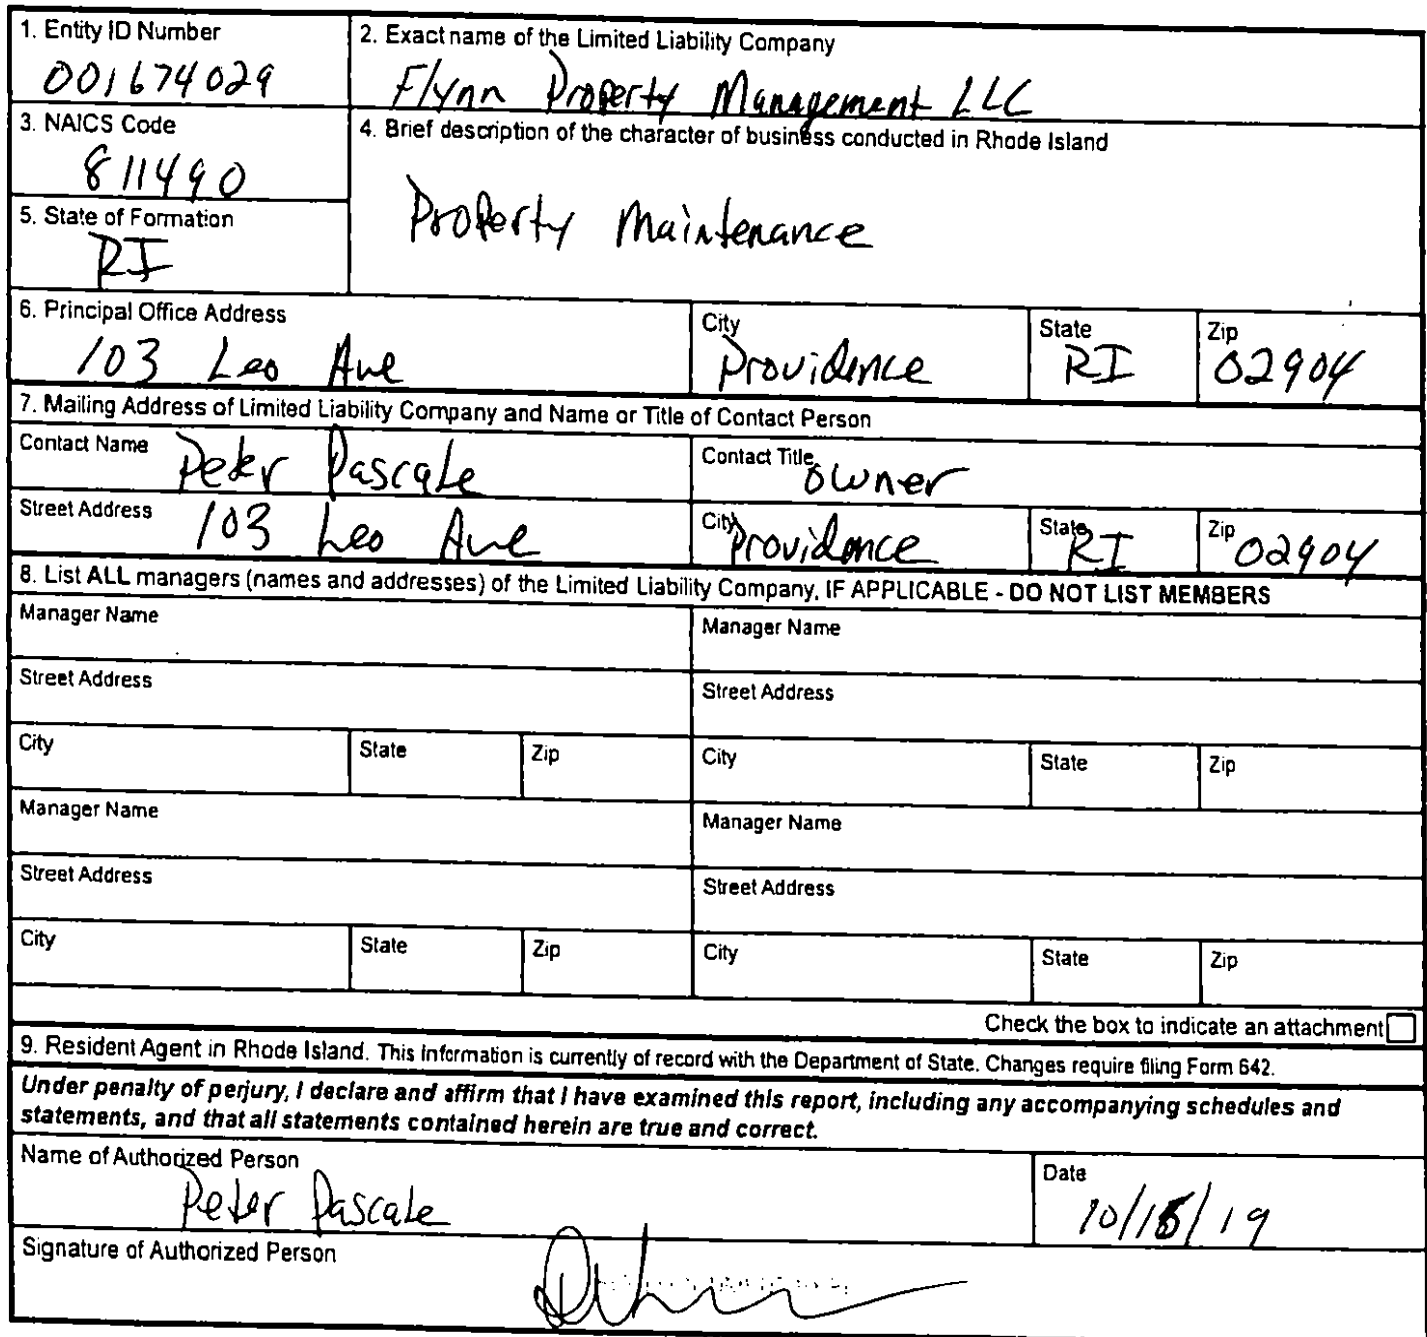 1. Entity ID Number
001674029
2. Exact name of the Limited Liability Company
Flynn Property Management LLC
3. NAICS Code
811490
4. Brief description of the character of business conducted in Rhode Island
Property Maintenance
5. State of Formation
RI
6. Principal Office Address
103 Leo Ave
City
Providence
State
RI
Zip
02904
7. Mailing Address of Limited Liability Company and Name or Title of Contact Person
Contact Name
Peter Pascale
Contact Title
owner
Street Address
103 Leo Ave
City
Providence
State
RI
Zip
02904
8. List ALL managers (names and addresses) of the Limited Liability Company, IF APPLICABLE - DO NOT LIST MEMBERS
Manager Name
Manager Name
Street Address
Street Address
City State Zip City State Zip
Manager Name
Manager Name
Street Address
Street Address
City State Zip City State Zip
Check the box to indicate an attachment
9. Resident Agent in Rhode Island. This information is currently of record with the Department of State. Changes require filing Form 642.
Under penalty of perjury, I declare and affirm that I have examined this report, including any accompanying schedules and
statements, and that all statements contained herein are true and correct.
Name of Authorized Person
Peter Pascale
Date
10/15/19
Signature of Authorized Person